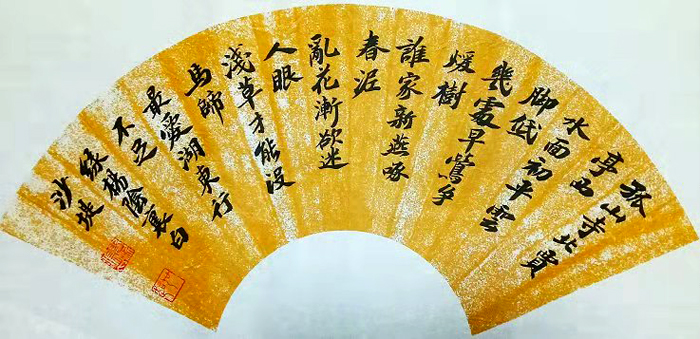 孤山寺北賈
亭西
水面初平雲
脚低
幾處早鶯爭
暖樹
誰家新燕啄
春泥
亂花漸欲迷
人眼
淺草才能沒
馬蹄
最愛湖東行
不足
綠楊陰裏白
沙堤